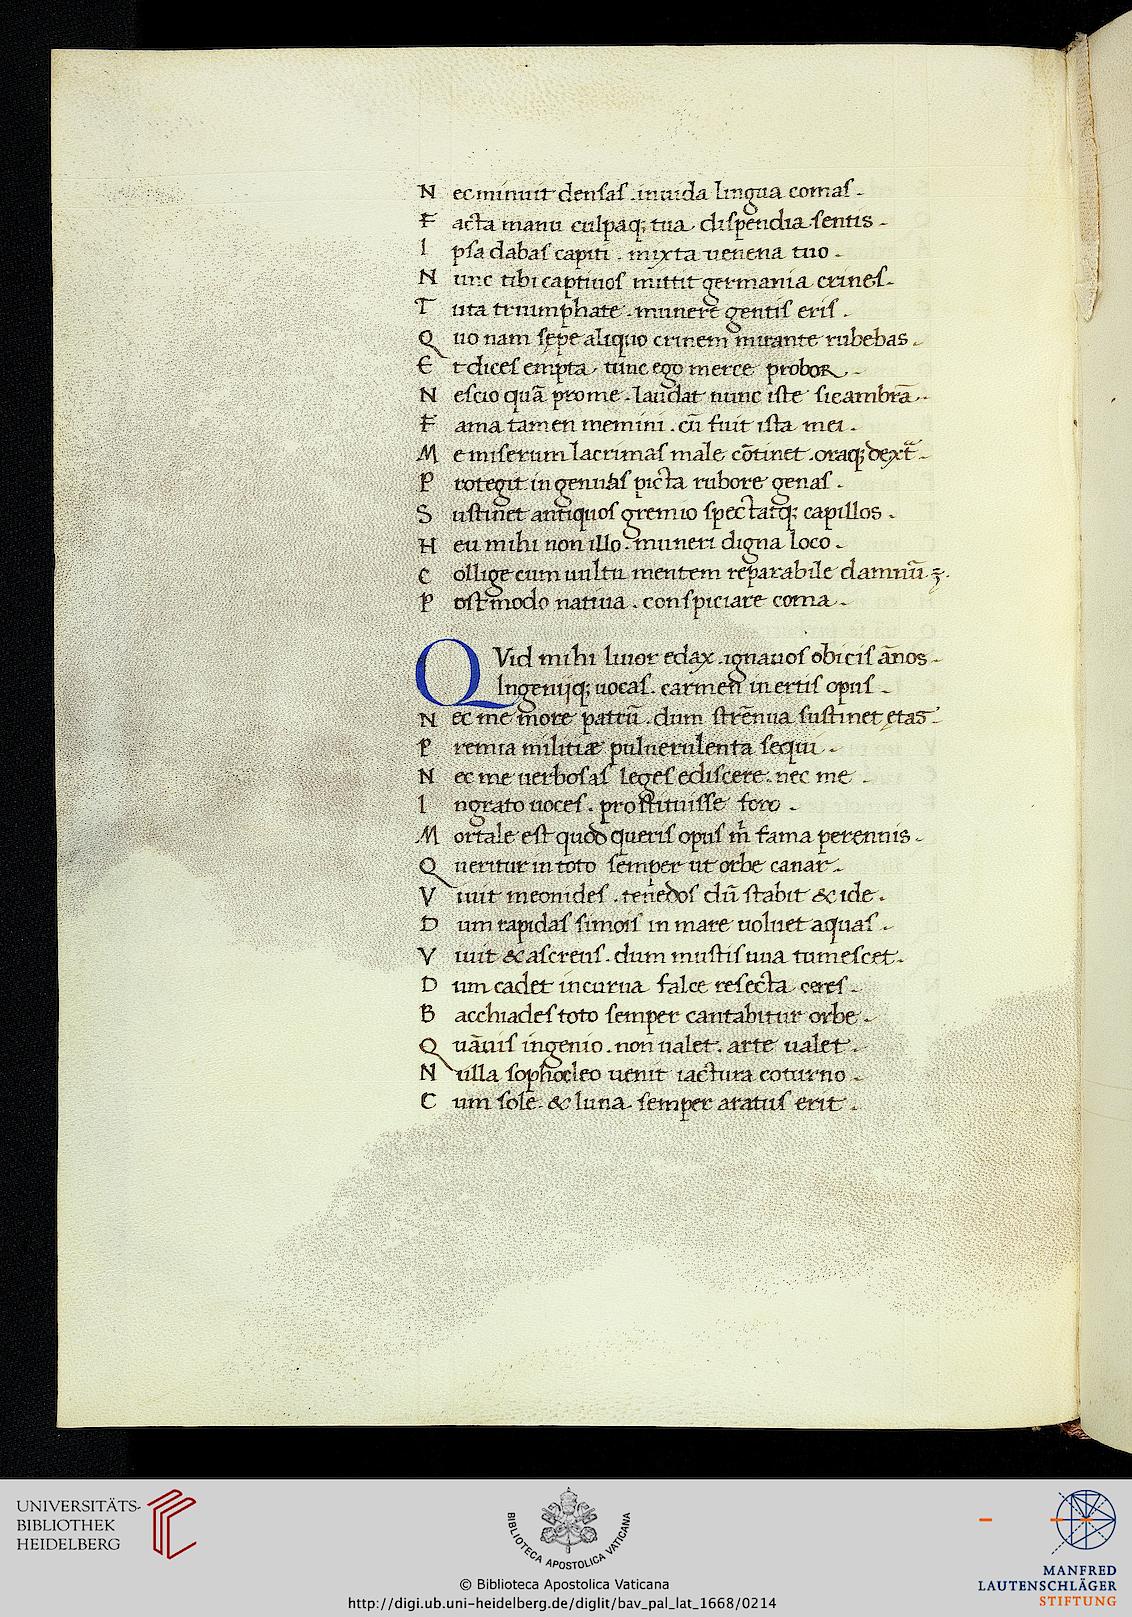 N ec minuit densas . inuida lingua comas .
F acta manu culpaq; tua . dispendia sentis .
I psa dabas capiti . mixta uenena tuo .
N unc tibi captiuos mittit germania crines .
T uta triumphate . munere gentis eris .
Q uo nam sępe aliquo crinem mirante rubebas .
E t dices empta . nunc ego merce probor .
N escio quā pro me . laudat nunc iste sicambrā .
F ama tamen memini . cū fuit ista mei .
M e miserum lacrimas male cōtinet . oraq; dext̄ .
P rotegit ingenuas picta rubore genas .
S ustinet antiquos gremio spectatq; capillos .
H eu mihi non illo . muneri digna loco .
C ollige cum uultu mentem reparabile damnū ÷ .
P ostmodo natiua . conspiciare coma .
QVid mihi liuor edax . ignauos obicis ānos .
Ingenijq; uocas . carmen inertis opus .
N ec me more patrū . dum strēnua sustinet ętas
P remia militiæ puluerulenta sequi .
N ec me uerbosas leges ediscere . nec me
I ngrato uoces . prostituisse foro .
M ortale est quod queris opus m̄ fama perennis .
Q ueritur in toto semper ut orbe canar .
V iuit meonides . tenedos dū stabit & ide .
D um rapidas simois in mare uoluet aquas .
V iuit & ascreus . dum mustis uua tumescet .
D um cadet incurua falce resecta ceres .
B acchiades toto semper cantabitur orbe .
Q uāuis ingenio . non ualet . arte ualet .
N ulla sophocleo uenit iactura coturno .
C um sole . & luna . semper aratus erit .
UNIVERSITÄTS-
BIBLIOTHEK
HEIDELBERG
BIBLIOTECA APOSTOLICA VATICANA
MANFRED
LAUTENSCHLÄGER
STIFTUNG
© Biblioteca Apostolica Vaticana
http://digi.ub.uni-heidelberg.de/diglit/bav_pal_lat_1668/0214